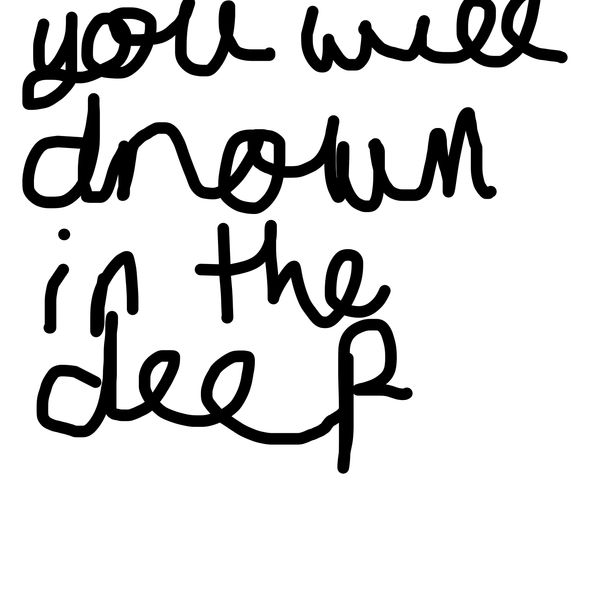 you will
drown
in the
deep